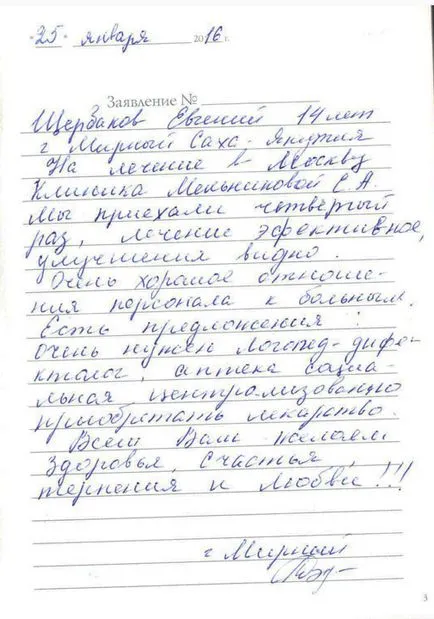 "25" января 2016 г.
Заявление №
Щербаков Евгений 14 лет
г Мирный Саха-Якутия
На лечение в Москву
Клиника Мельниковой Е.А.
Мы приехали четвёртый
раз, лечение эфективное,
улучшения видно.
Очень хорошое отноше-
ния персонала к больным.
Есть предложения:
Очень нужен логопед-дифе-
ктолог, аптека социа-
льная централизованно
приобретать лекарство.
Всем Вам желаем
здоровья, счастья,
терпения и любви!!!
г Мирный
3